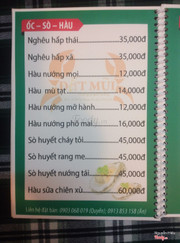 ỐC - SÒ - HÀU
Nghêu hấp thái 35,000đ
Nghêu hấp xả 35,000đ
Hàu nướng mọi 12,000đ
Hàu mù tạt 14,000đ
Hàu nướng mỡ hành 12,000đ
Hàu nướng phô mai 16,000đ
Sò huyết cháy tỏi 45,000đ
Sò huyết rang me 45,000đ
Sò huyết nướng tái 45,000đ
Hàu sữa chiên xù 60,000đ
Liên hệ đặt bàn: 0903 060 019 (Quyên) 0913 853 158